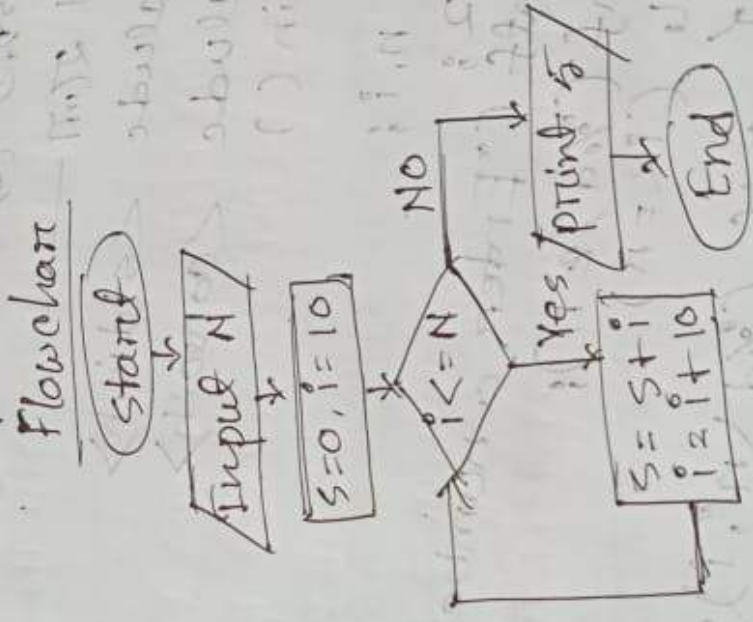 Flowchart
Start
Input N
S=0, i=10
i<=N
NO
Yes
S = S+i
i = i+10
print S
End